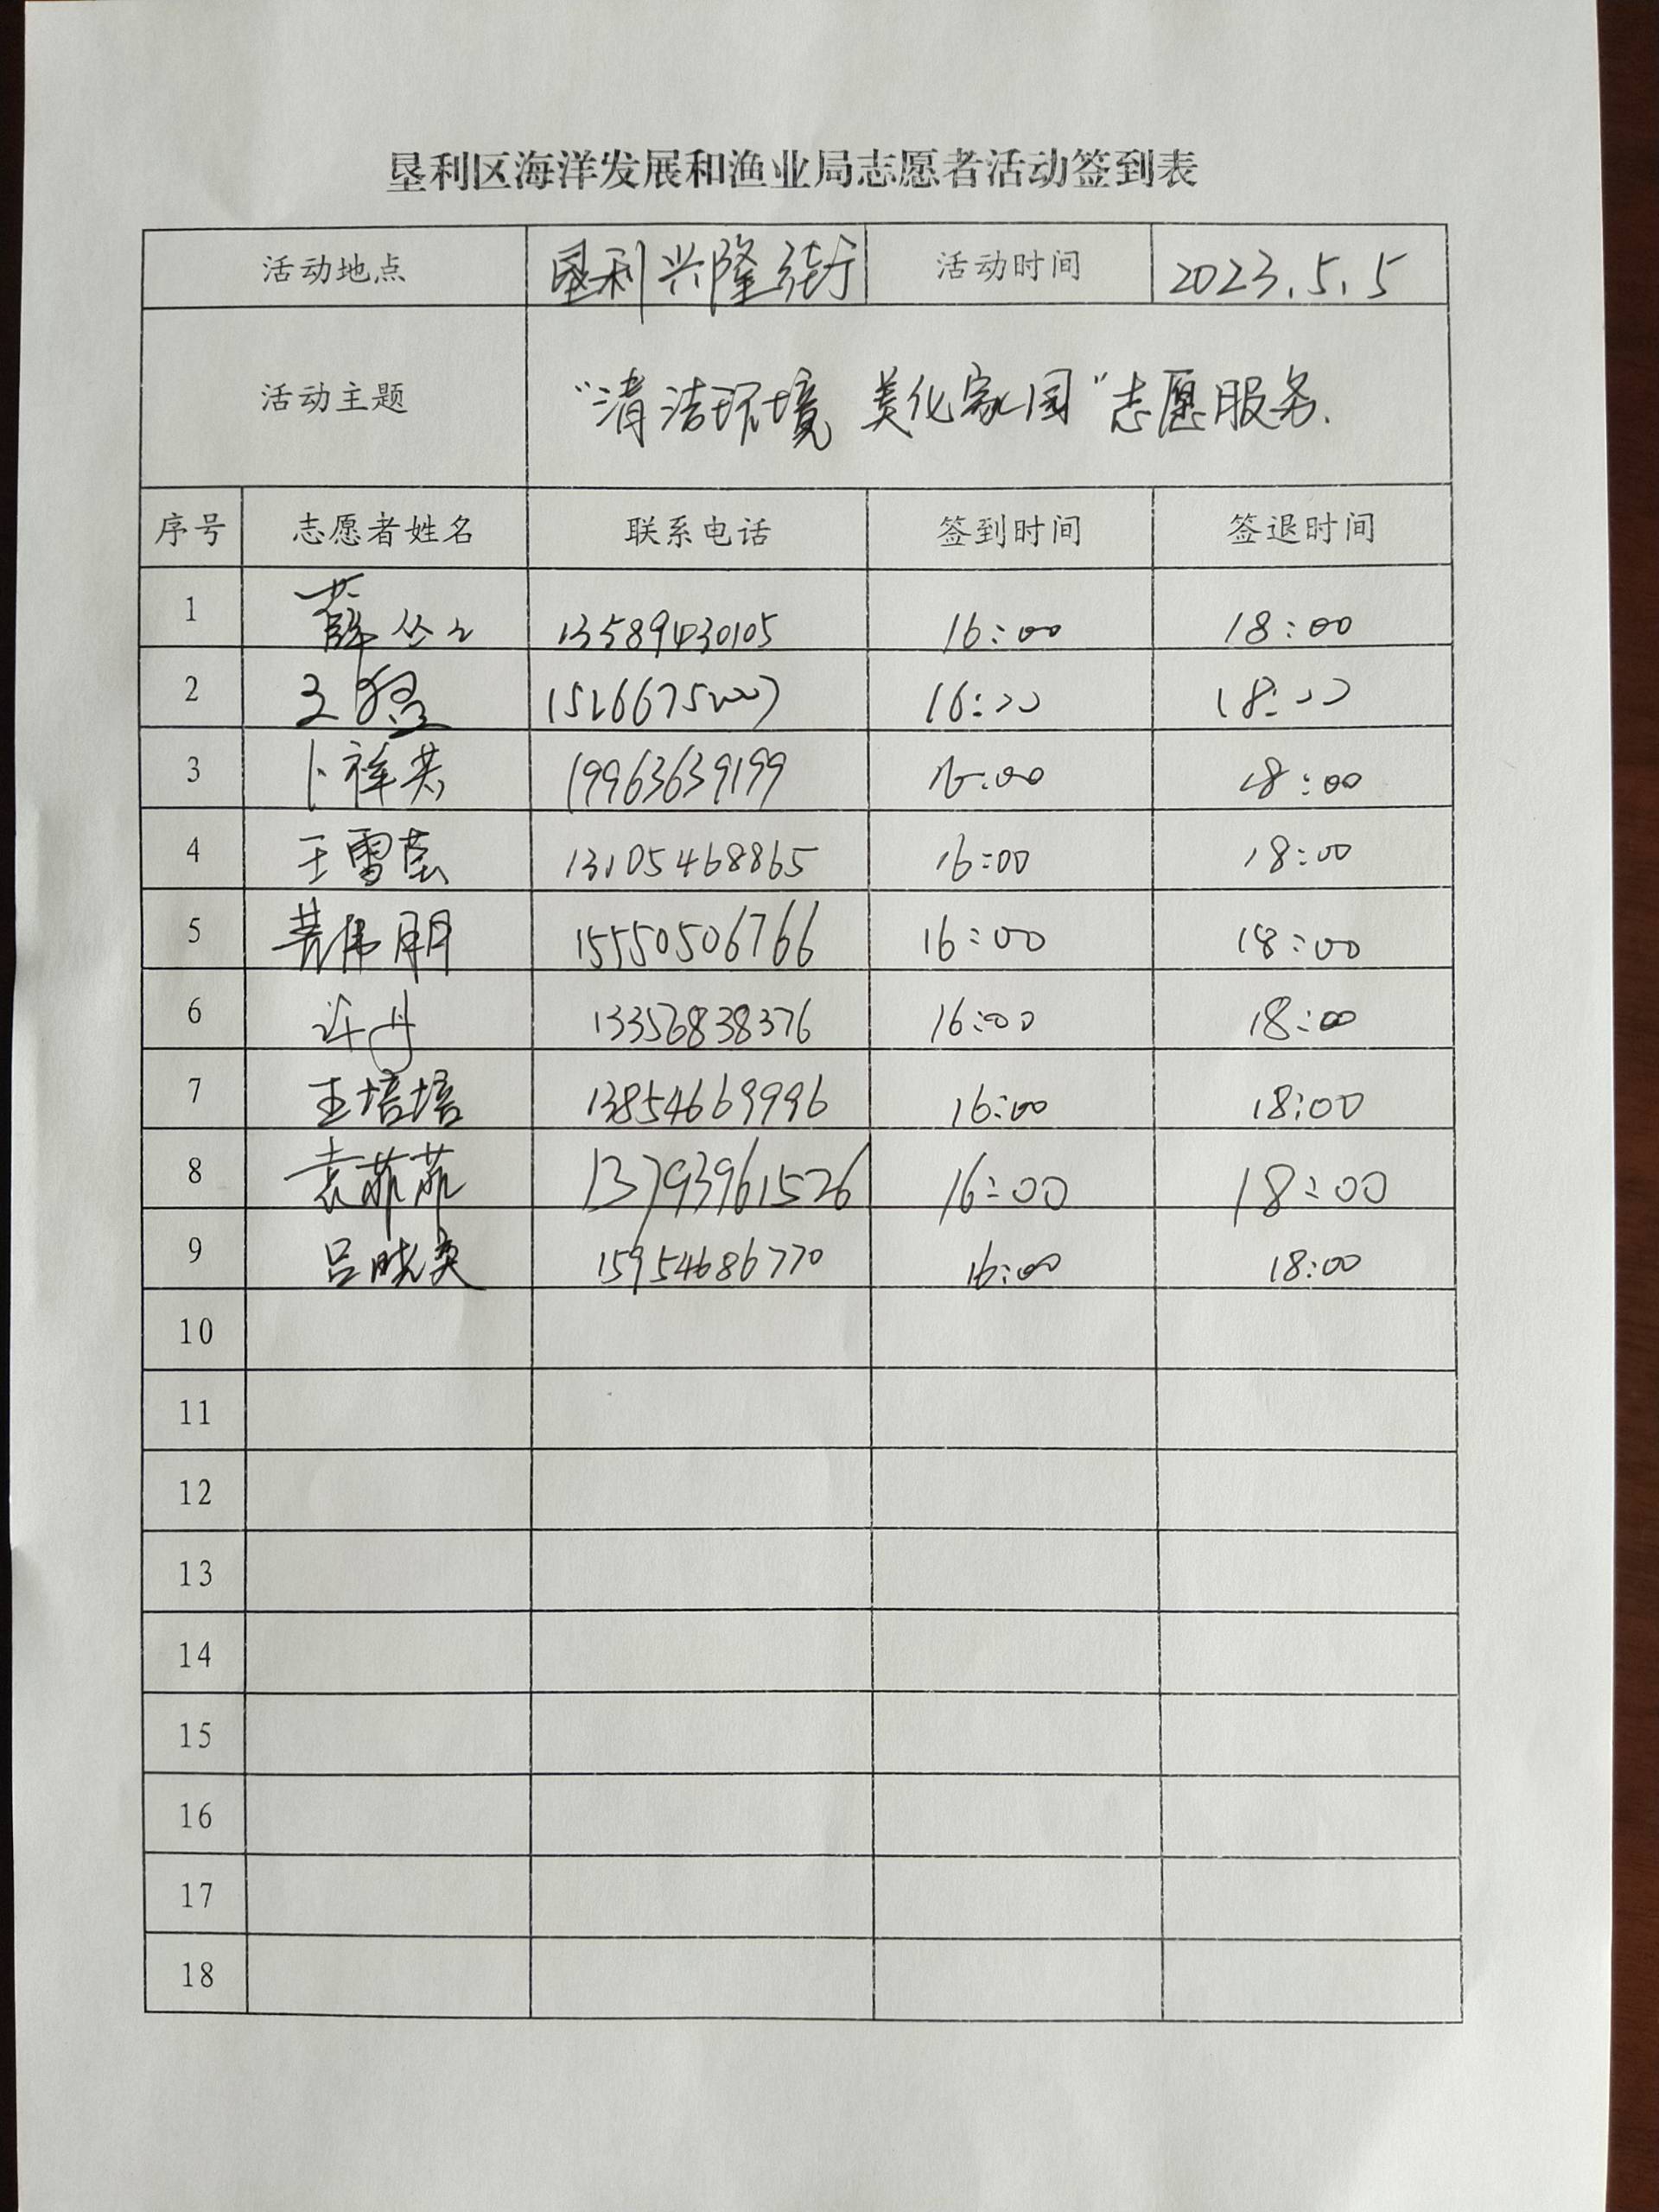 垦利区海洋发展和渔业局志愿者活动签到表
活动地点 垦利兴隆街 活动时间 2023.5.5
活动主题 “清洁环境 美化家园”志愿服务.
序号 志愿者姓名 联系电话 签到时间 签退时间
1 薛丛丛 13589430105 16:00 18:00
2 王猛 15266752007 16:00 18:00
3 卜祥英 19963639199 16:00 18:00
4 王雪莹 13105468865 16:00 18:00
5 黄伟朋 15550506766 16:00 18:00
6 许丹 13356838376 16:00 18:00
7 王培培 13854669996 16:00 18:00
8 袁菲菲 13793961526 16:00 18:00
9 吕晓爽 15954686770 16:00 18:00
10
11
12
13
14
15
16
17
18